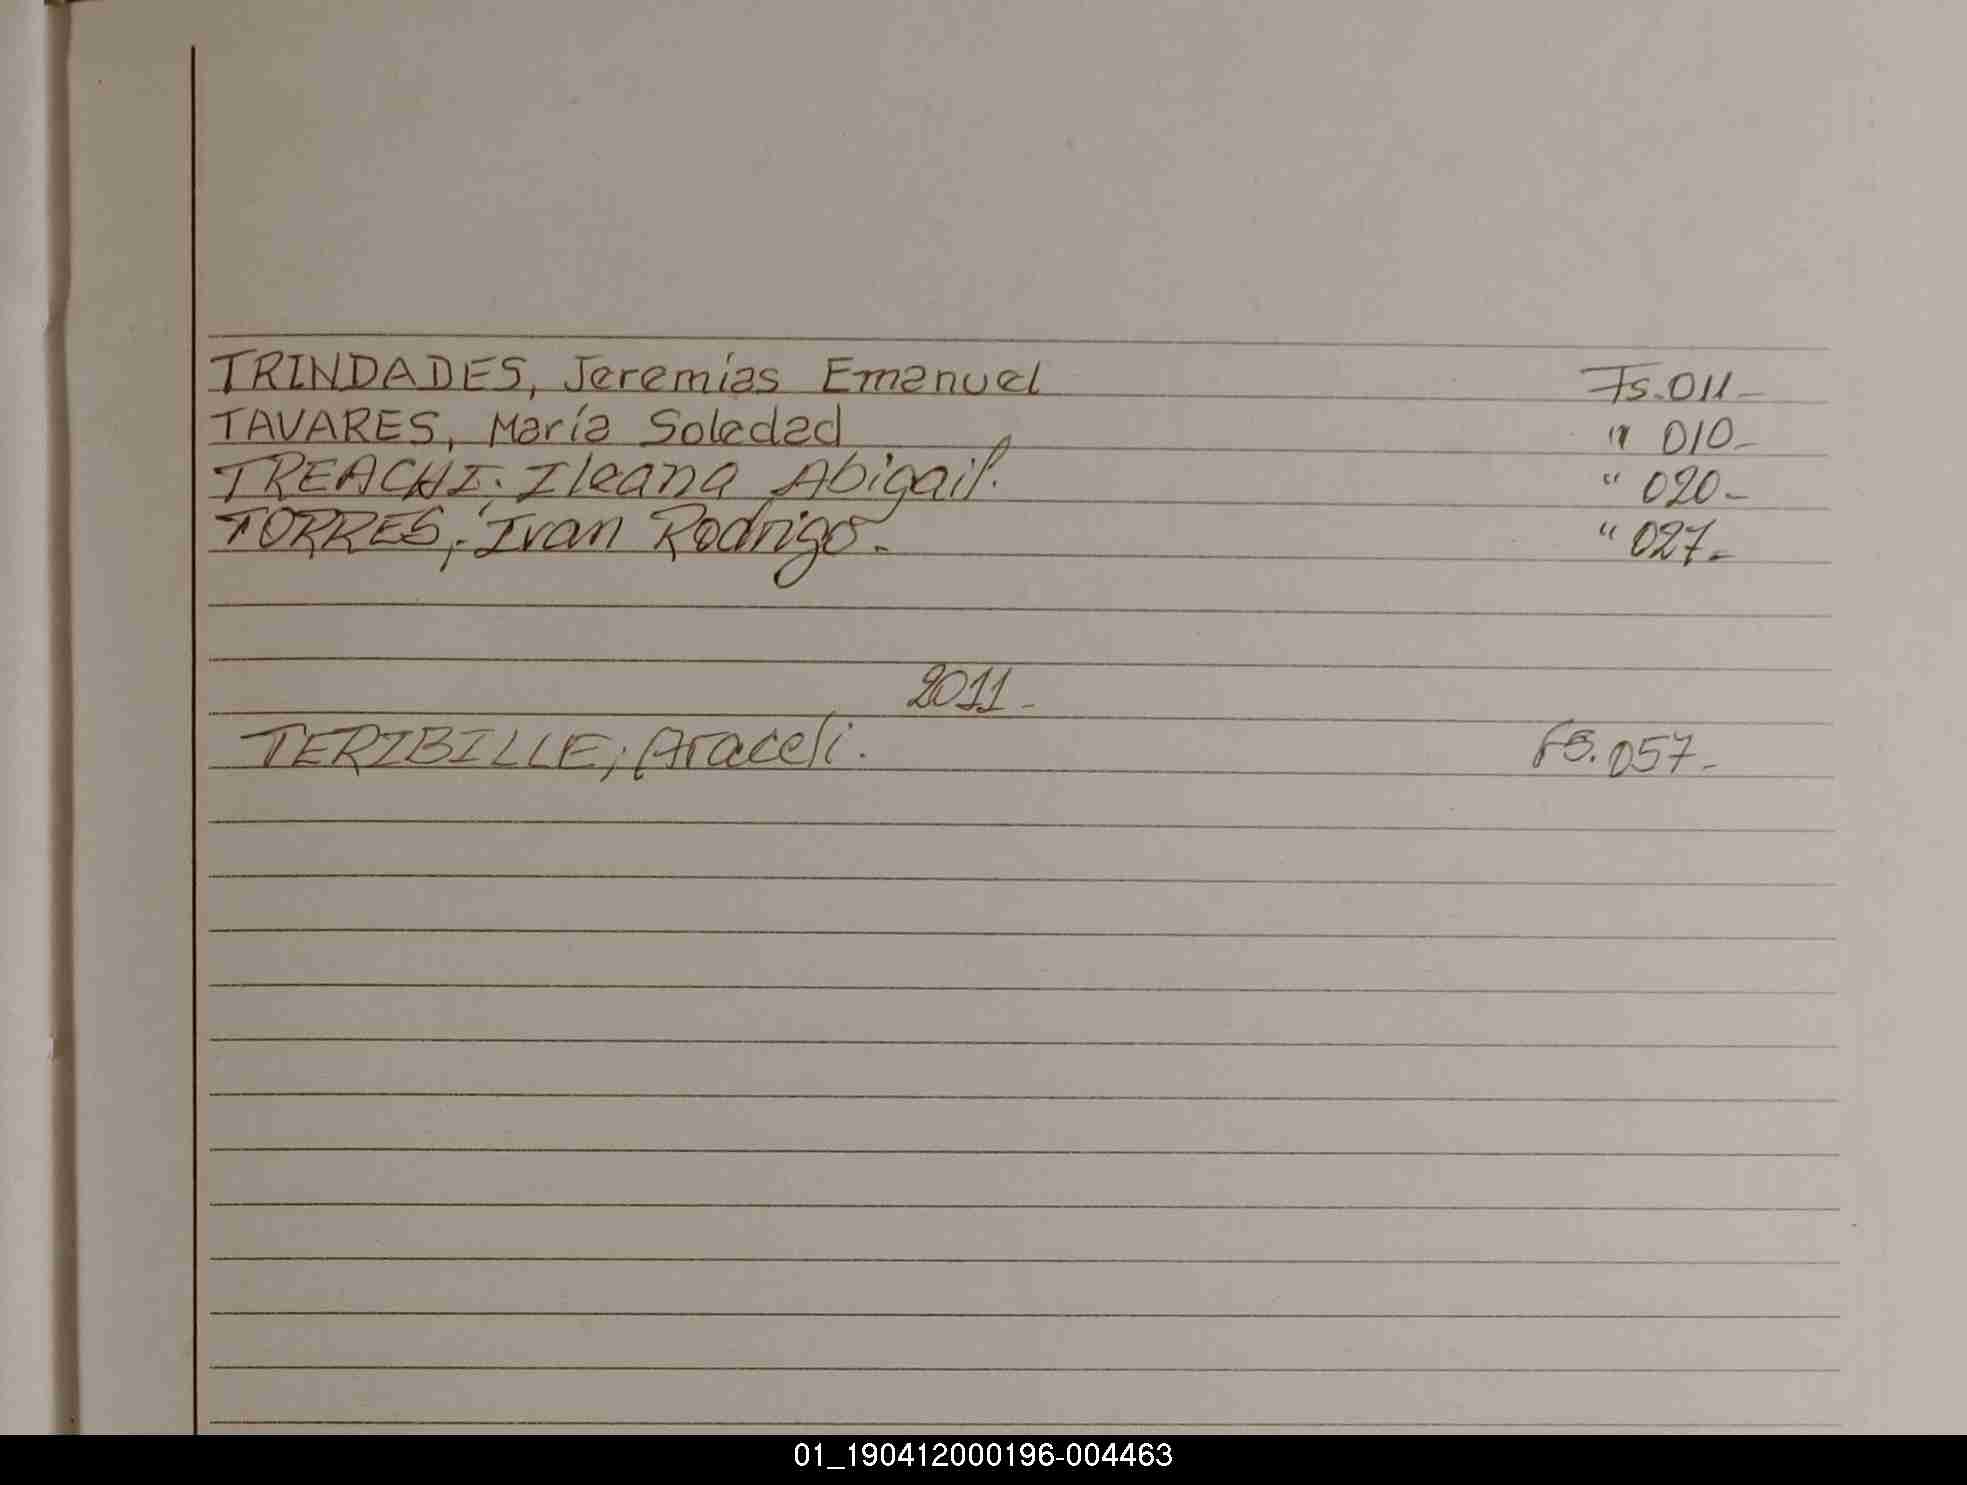 TRINDADES, Jeremías Emanuel Fs. 011-
TAVARES, María Soledad " 010-
TREACHI; Ileana Abigail. " 020-
TORRES, Ivan Rodrigo. " 027-
2011-
TERIBILLE; Araceli. Fs. 057-
01_190412000196-004463